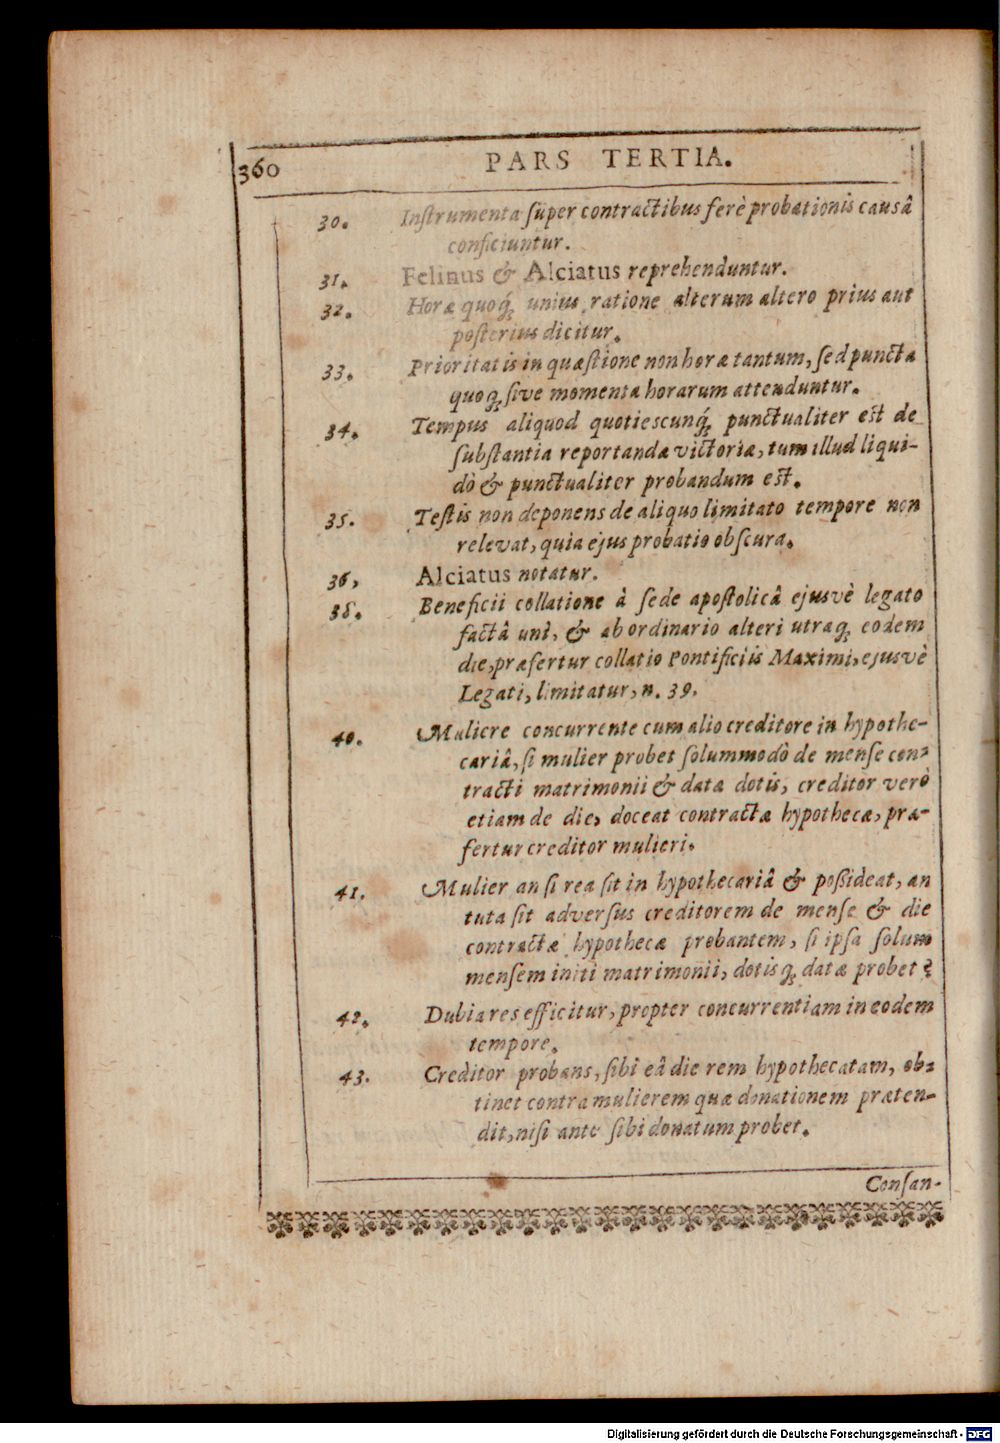 360
PARS TERTIA.
30. Instrumenta super contractibus ferè probationis causâ
conficiuntur.
31. Felinus & Alciatus reprehenduntur.
32. Horæ quoq́; unius ratione alterum altero prius aut
posterius dicitur.
33. Prioritatis in quæstione non horæ tantum, sed puncta
quoq; sive momenta horarum attenduntur.
34. Tempus aliquod quotiescunq́; punctualiter est de
substantia reportandæ victoriæ, tum illud liqui-
dò & punctualiter probandum est.
35. Testis non deponens de aliquo limitato tempore non
relevat, quia ejus probatio obscura.
36, Alciatus notatur.
38. Beneficii collatione à sede apostolicâ ejusvè legato
factâ unì, & ab ordinario alteri utraq; eodem
die, præfertur collatio Pontificiis Maximi, ejusvè
Legati, limitatur, n. 39.
40. Muliere concurrente cum alio creditore in hypothe-
cariâ, si mulier probet solummodò de mense con-
tracti matrimonii & data dotis, creditor verò
etiam de die, doceat contractæ hypothecæ, præ-
fertur creditor mulieri.
41. Mulier an si rea sit in hypothecariâ & possideat, an
tuta sit adversus creditorem de mense & die
contractæ hypothecæ probantem, si ipsa solum
mensem initi matrimonii, dotisq; datæ probet?
42. Dubia res efficitur, propter concurrentiam in eodem
tempore.
43. Creditor probans, sibi eâ die rem hypothecatam, ob-
tinet contra mulierem quæ donationem præten-
dit, nisi ante sibi donatum probet.
Consan-
Digitalisierung gefördert durch die Deutsche Forschungsgemeinschaft - DFG